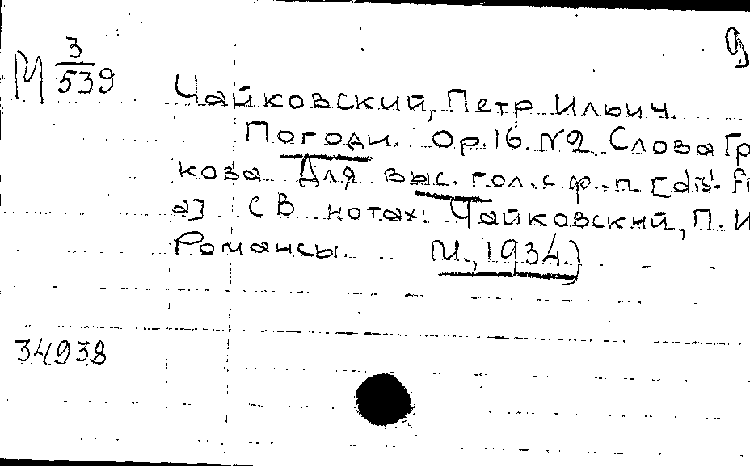 М 3/539
Чайковский, Петр Ильич.
Погоди. Op. 16. №2 Слова Гр
кова Для выс. гол. с ф.-п. [dis'-fi
a] (В нотах: Чайковский, П. И
Романсы. М., 1934.)
34938